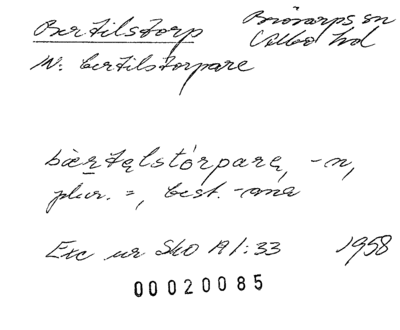 Bertilstorp
Brösarps sn
Albo hd
N: bertilstorpare
bærtəlstórparə, -n,
plur. =, best. -ana
Exc ur Sko A1:33 1958
00020085